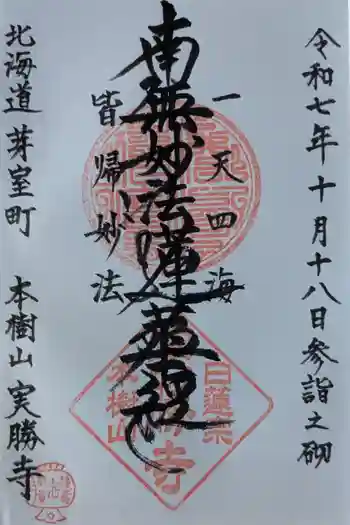 令和七年十月十八日参詣之砌
一天四海
南無妙法蓮華経
皆帰妙法
北海道芽室町　本樹山実勝寺
日蓮宗
本樹山